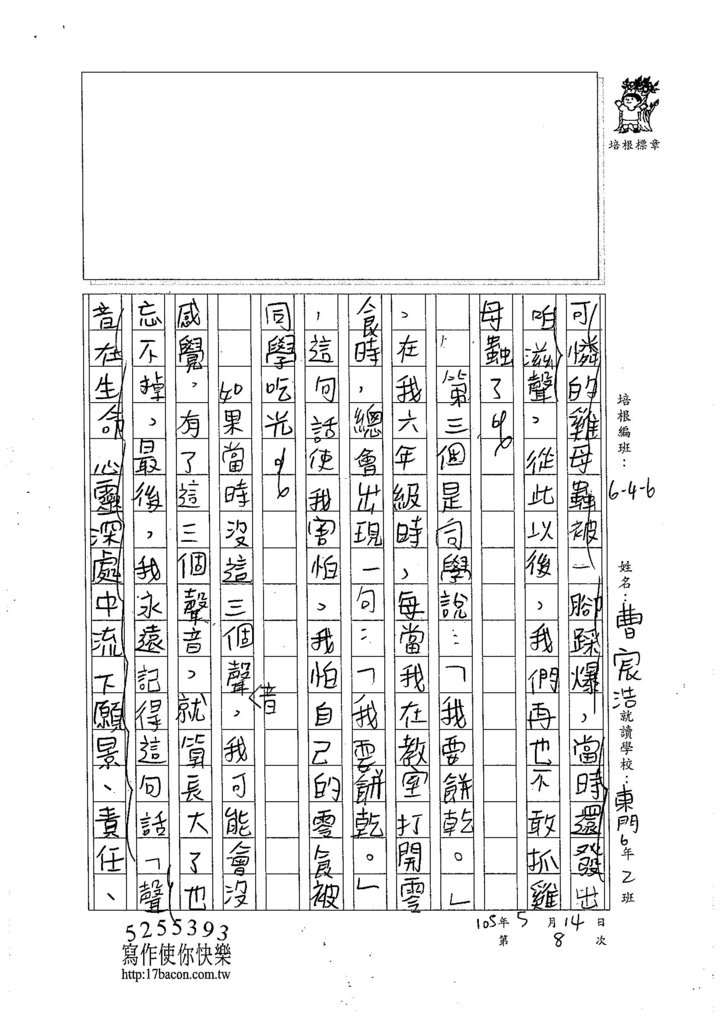 培根標章
培根編班：6-4-6
姓名：曹宸浩
就讀學校：東門6年乙班
可憐的雞母蟲被一腳踩爆，當時還發出
咱滋聲，從此以後，我們再也不敢抓雞
母蟲了。
第三個是同學說：「我要餅乾。」
，在我六年級時，每當我在教室打開零
食時，總會出現一句：「我要餅乾。」
，這句話使我害怕，我怕自己的零食被
同學吃光。
如果當時沒這三個聲音，我可能會沒
感覺，有了這三個聲音，就算長大了也
忘不掉，最後，我永遠記得這句話「聲
音在生命心靈深處中流下願景、責任、
105年5月14日
第8次
5255393
寫作使你快樂
http:17bacon.com.tw